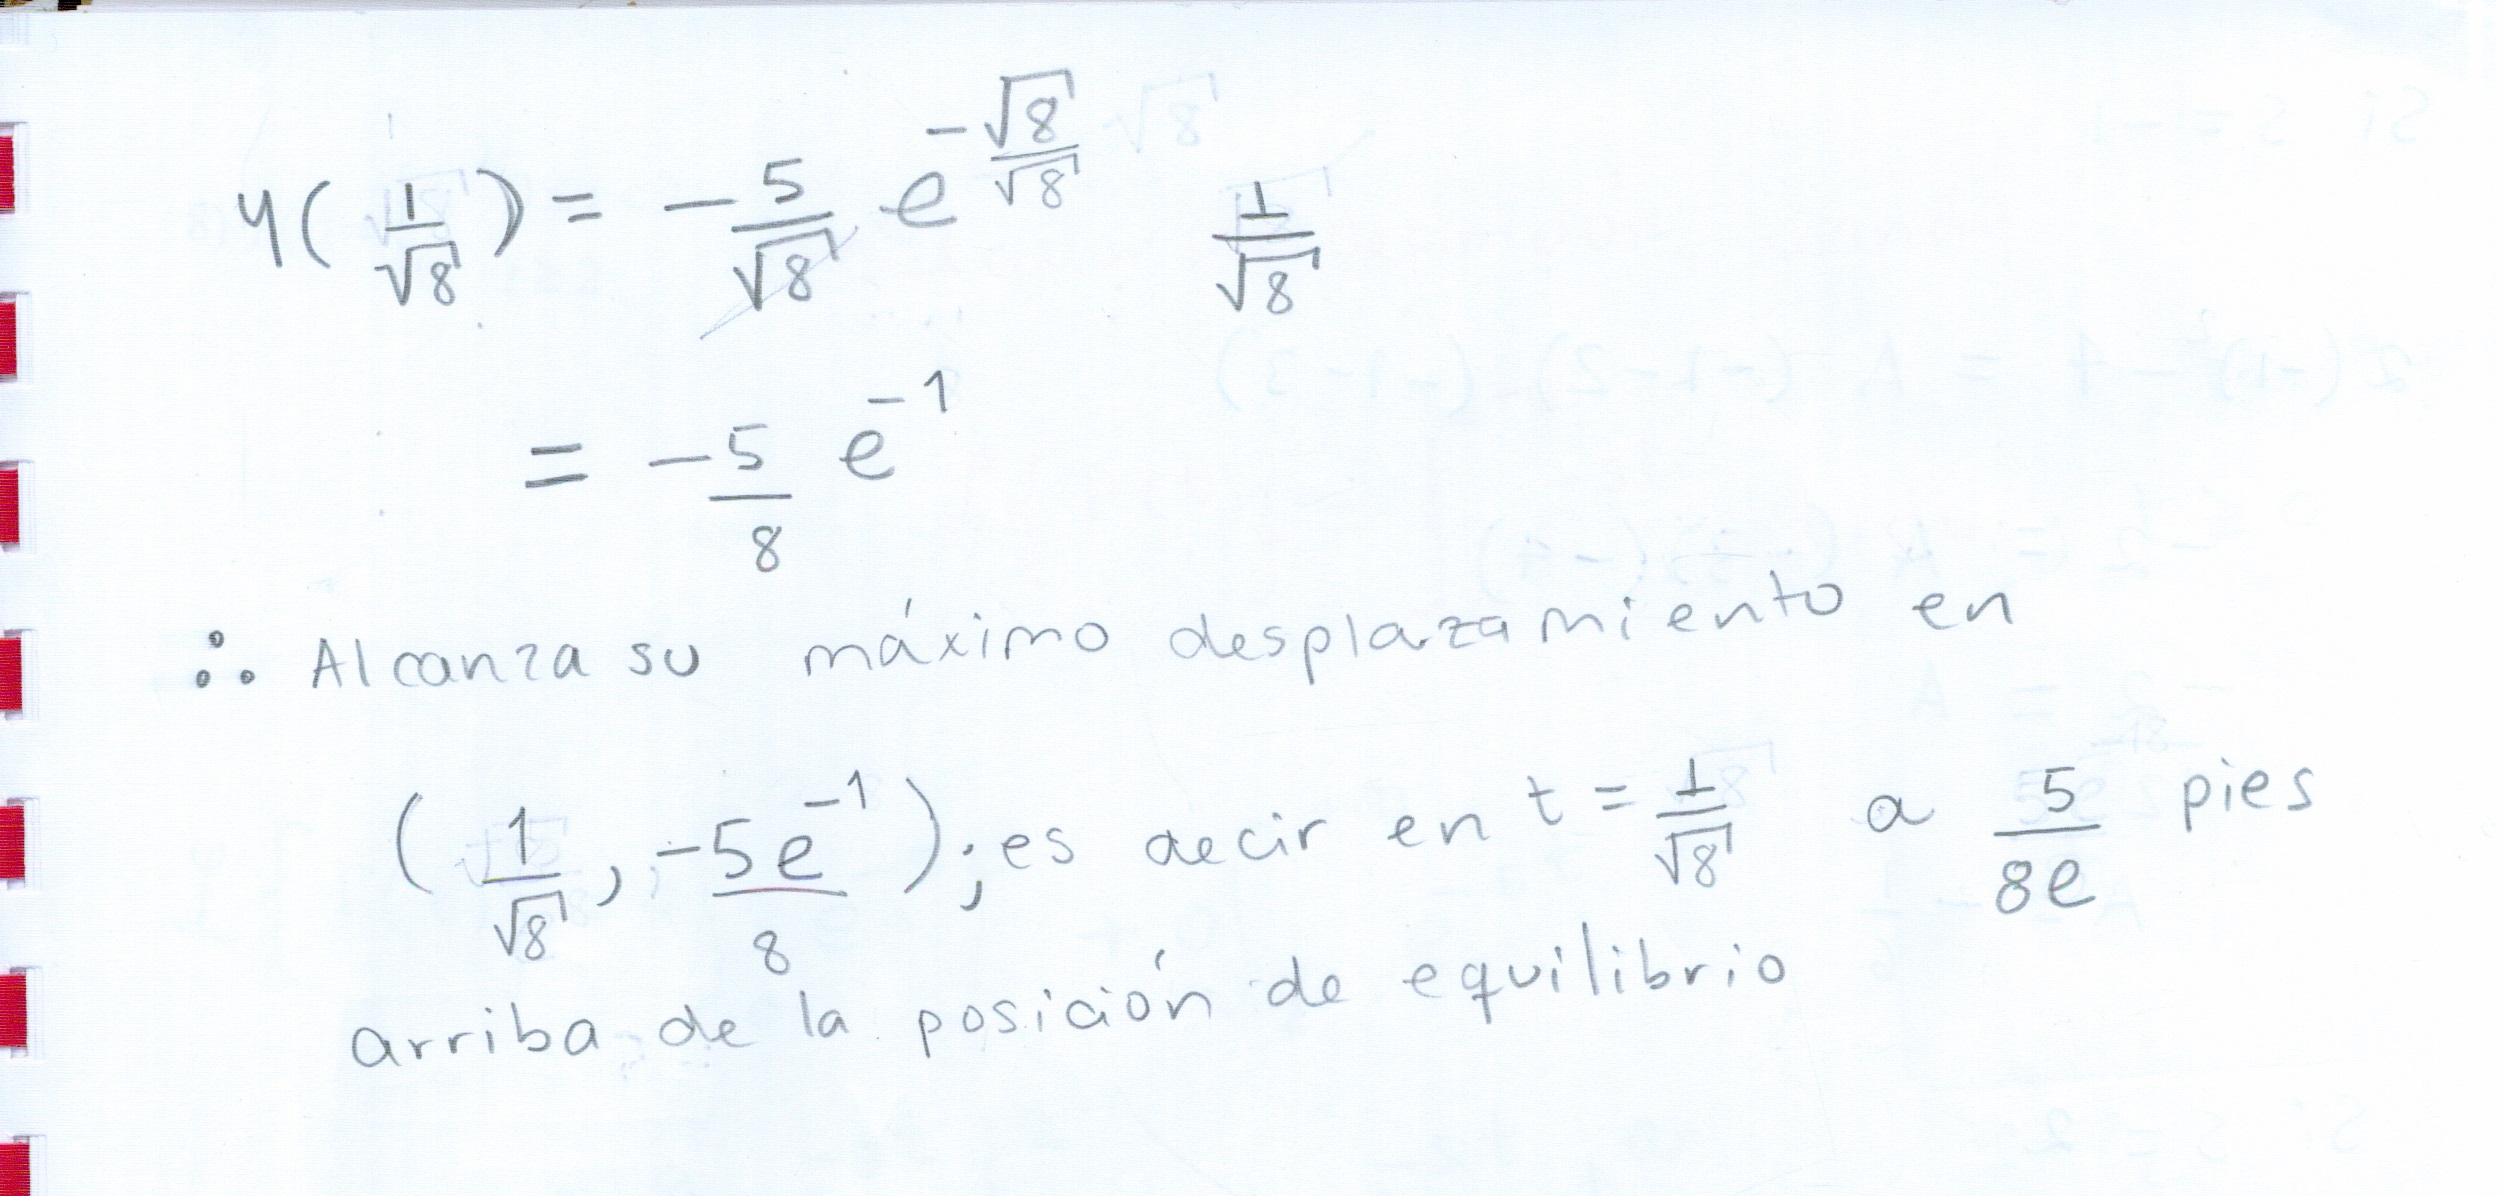 y(1/√8) = -5/√8 e^(-√8/√8) 1/√8
= -5/8 e^-1
∴ Alcanza su máximo desplazamiento en
(1/√8, -5e^-1/8); es decir en t = 1/√8 a 5/8e pies
arriba de la posición de equilibrio